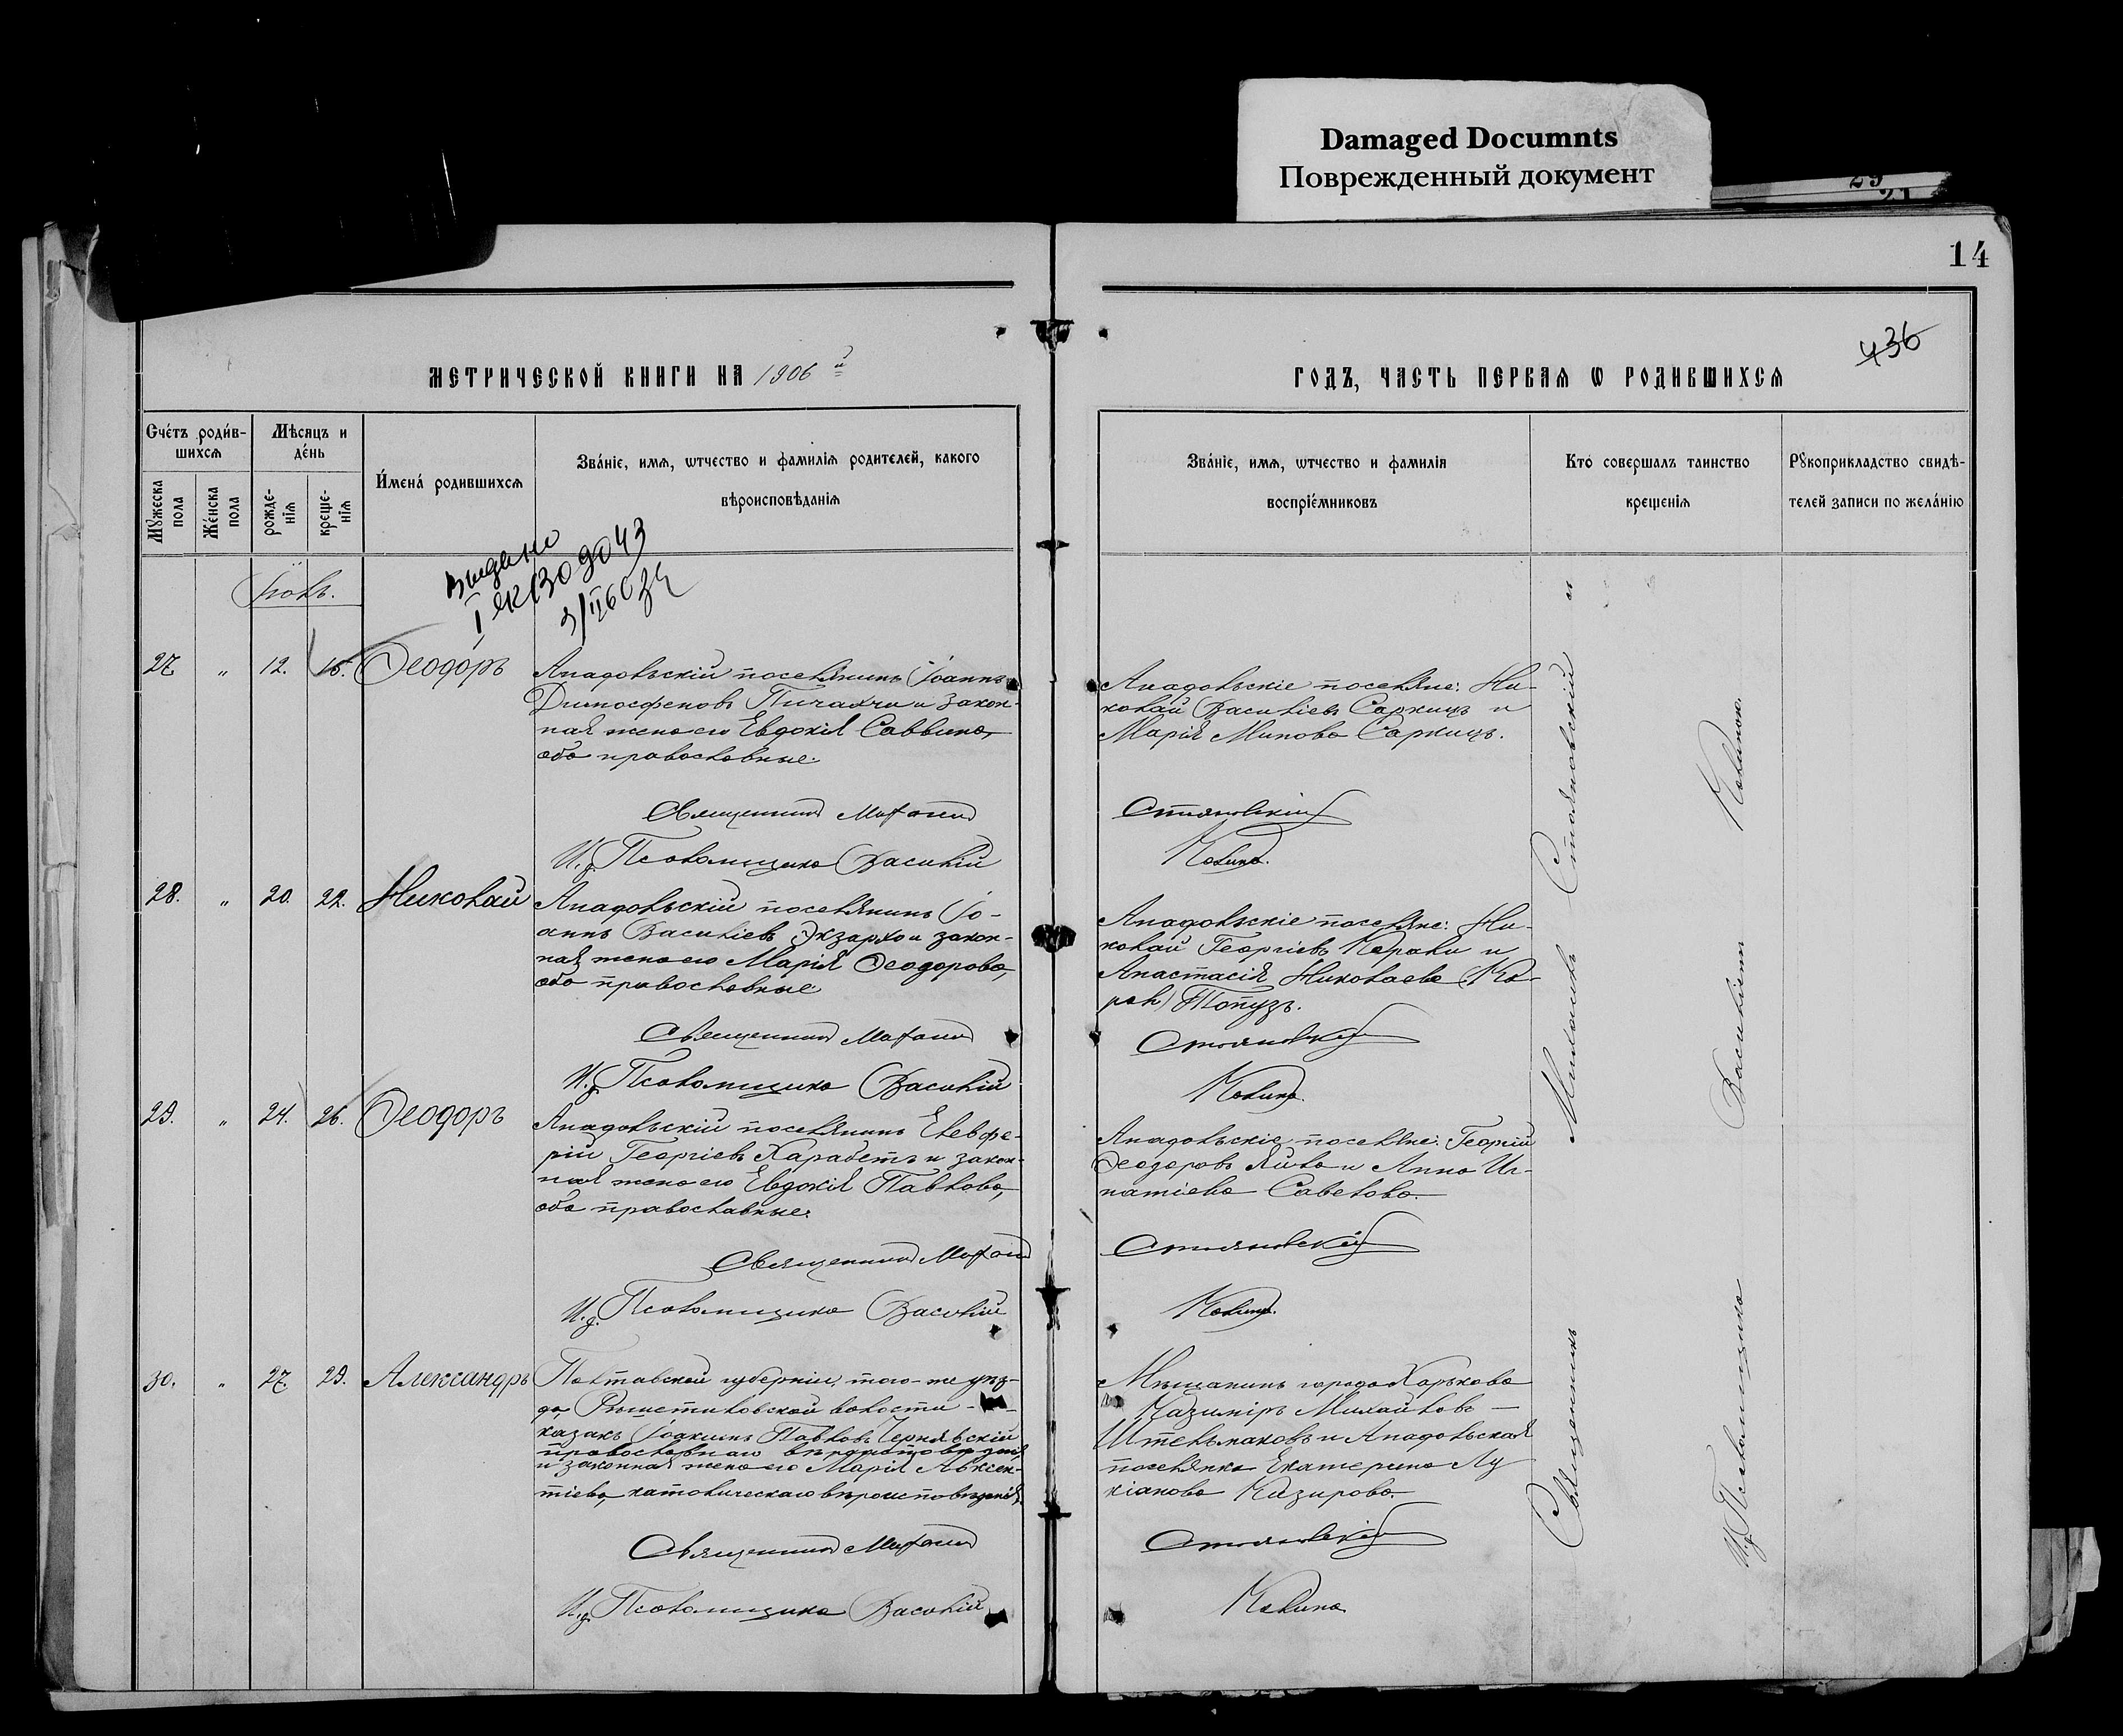 Damaged Documnts
Поврежденный документ
14
436
МЕТРИЧЕСКОЙ КНИГИ НА 1906 й
ГОДЪ, ЧАСТЬ ПЕРВАѦ Ѡ РОДИВШИХСѦ
Счетъ родив-
шихсѧ
Мѣсяцъ и
день
Мужеска
пола
Женска
пола
рожде-
нія
креще-
нія
Имена родившихсѧ
Званіе, имѧ, ѡтчество и фамиліѧ родителей, какого
вѣроисповѣданіѧ
Званіе, имѧ, ѡтчество и фамиліѧ
воспріемниковъ
Кто совершалъ таинство
крещеніѧ
Рукоприкладство свидѣ-
телей записи по желанію
Выдано
Іюль.
27. " 12. 16. Ѳеодоръ
Анадольскій поселянинъ Іоаннъ
Димосфеновъ Пичахчи и закон-
ная жена его Евдокія Саввина,
оба православные.
Священникъ
И. д. Псаломщика Василій
Анадольскіе поселяне: Ни-
колай Васильевъ Саркицъ и
Марія Минова Саркицъ.
Стояновскій
28. " 20. 22. Николай
Анадольскій поселянинъ Іо-
аннъ Василіевъ Экзархо и закон-
ная жена его Марія Ѳеодорова,
оба православные
Священникъ
И. д. Псаломщика Василій
Анадольскіе поселяне: Ни-
колай Георгіевъ Корали и
Анастасія Николаева
Топузъ.
Стояновскій
29. " 24. 26. Ѳеодоръ
Анадольскій поселянинъ Елевфе-
рій Георгіевъ Харабетъ и закон-
ная жена его Евдокія Павлова,
оба православные.
Священникъ
И. д. Псаломщика Василій
Анадольскіе поселяне: Георгій
Ѳеодоровъ Яйло и Анна Иг-
натіева Савелова.
Стояновскій
30. " 27. 29. Александръ
Полтавской губерніи, того-же уѣз-
да, Рѣшетиловской волости -
казакъ Іоакимъ Павловъ Чернявскій
православнаго вѣроисповѣданія
и законная жена его Марія Авксен-
тіева, католическаго вѣроисповѣданія.
Священникъ
И. д. Псаломщика Василій
Мѣщанинъ города Харькова
Казиміръ Михайловъ —
Штельмаховъ и Анадольская
поселянка Екатерина Лу
кіанова Хазирова.
Стояновскій
Священникъ Стояновскій
И. д. Псаломщика Василій